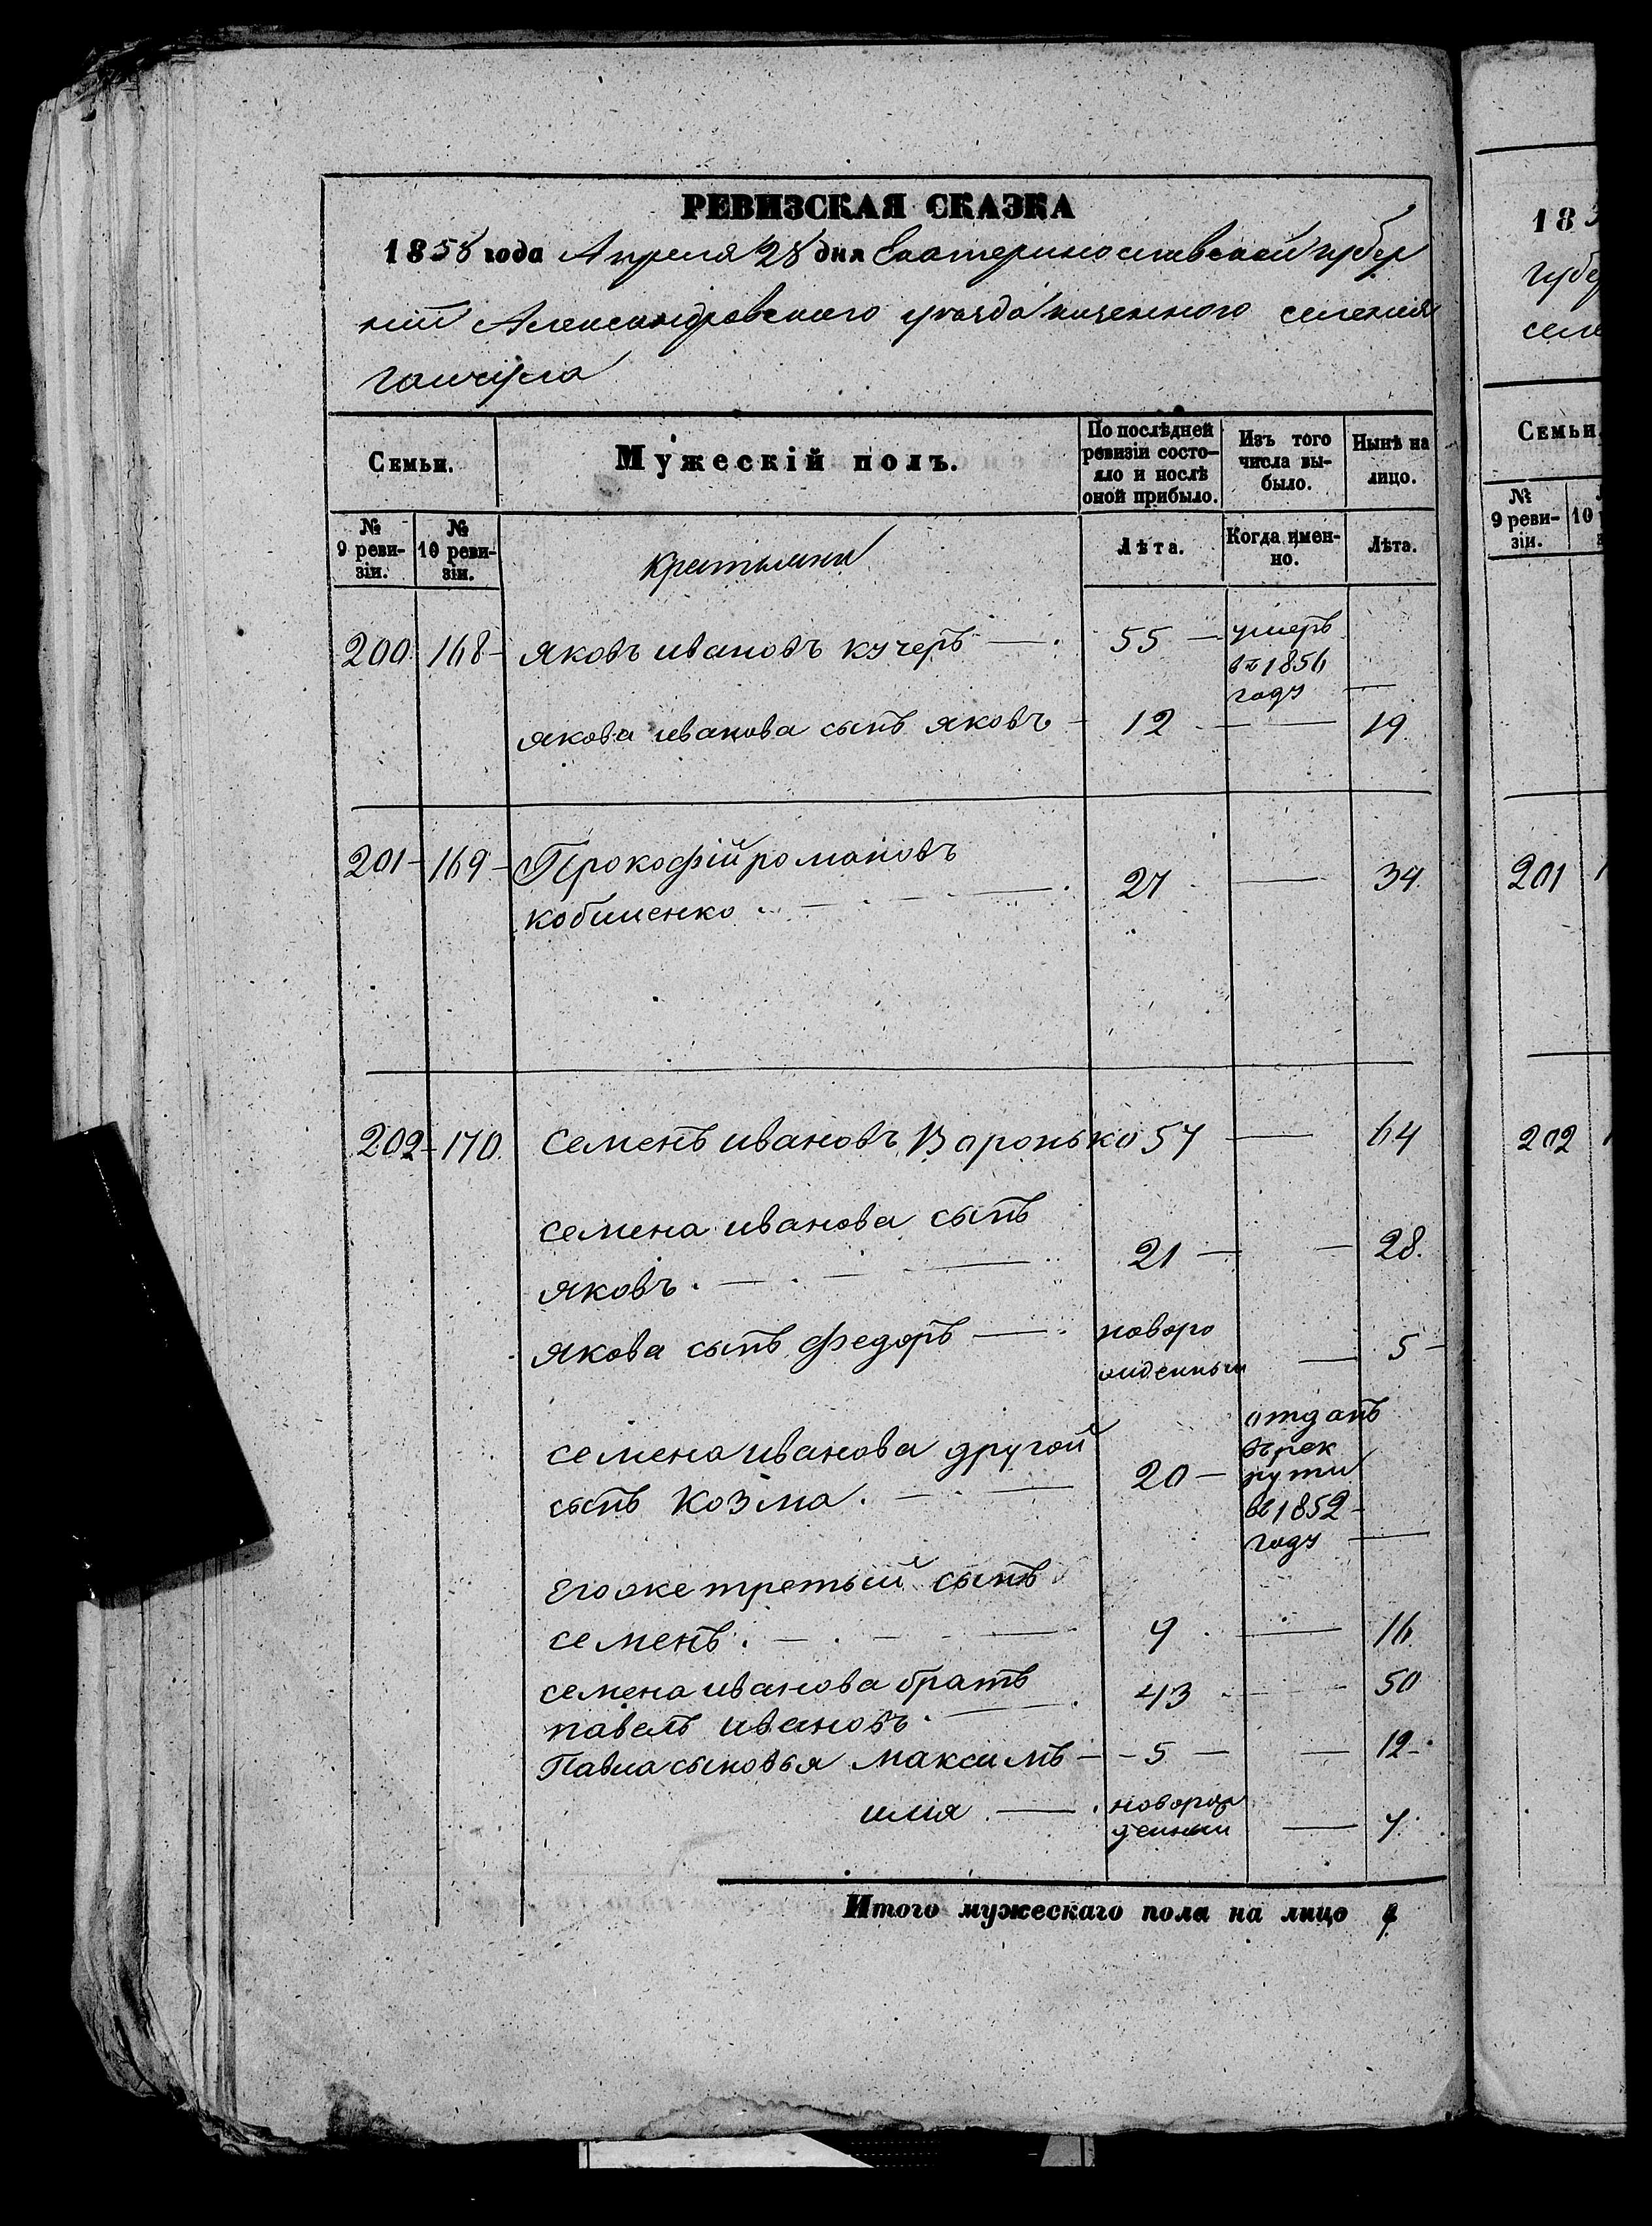 РЕВИЗСКАЯ СКАЗКА
1858 года Апреля 28 дня Екатеринославской губер
ніи Александровскаго уѣзда казенного селенія
гайчула
Семьи. Мужескій полъ. По послѣдней ревизіи состояло и послѣ оной прибыло. Изъ того числа выбыло. Нынѣ на лицо.
№ 9 ревизіи. № 10 ревизіи. крестьяни Лѣта. Когда имен-но. Лѣта.
200 168 яковъ ивановъ кучеръ 55 умеръ въ 1856 году
якова иванова сынъ яковъ 12 19
201 169 Прокофій романовъ
кобименко 27 34
202 170 семенъ ивановъ Воронько 57 64
семена иванова сынъ
яковъ 21 28
якова сынъ федоръ новоро жденный 5
семена иванова другой
сынъ козма 20 отданъ въ рек руты въ 1852 году
его же третьий сынъ
семенъ 9 16
семена иванова братъ
павелъ ивановъ 43 50
Павла сыновья максимъ 5 12
илия новорож денный 7
Итого мужескаго пола на лицо
18
губер
селе
Семьи.
№ 9 реви-зіи. 10
201
202